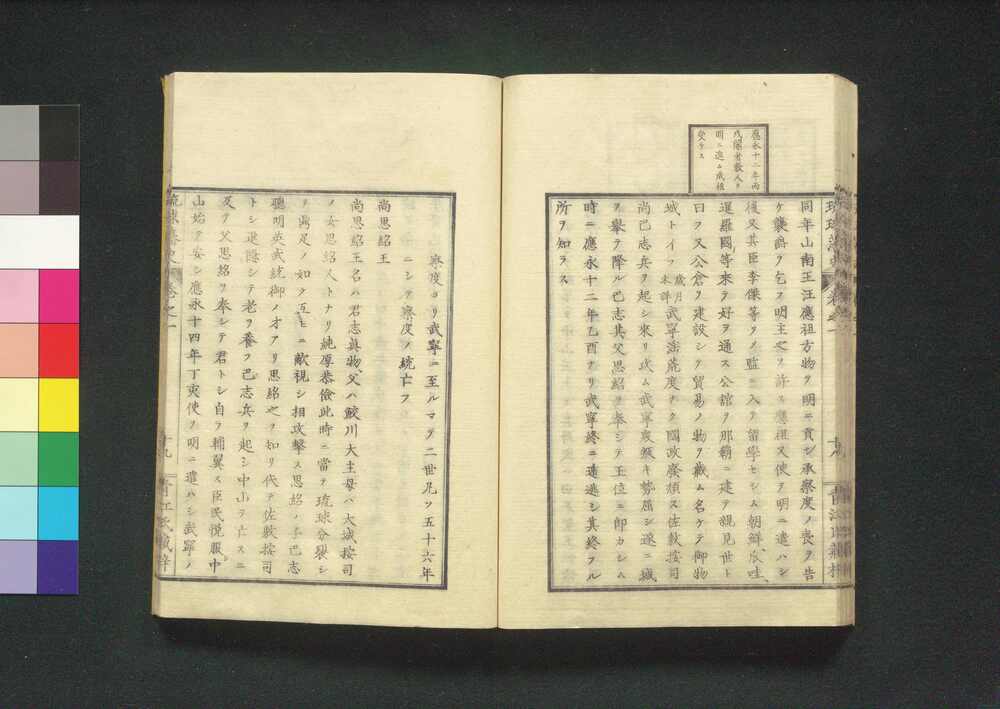 應永十二年丙
戌閹者數人ヲ
明ニ進ム成祖
受ケス
同年山南王汪應祖方物ヲ明ニ貢シ承察度ノ喪ヲ告
ケ襲爵ヲ乞フ明主之ヲ許ス應祖又使ヲ明ニ遣ハシ
後又其臣李傑等ヲノ監ニ入テ留學セシム朝鮮爪哇
暹羅國等來テ好ヲ通ス公館ヲ那覇ニ建テ親見世ト
曰フ又公倉ヲ建設シテ貿易ノ物ヲ藏ム名ケテ御物
城トイフ歳月未詳武寧淫荒度ナク國政廢頽ス佐敷按司
尚巴志兵ヲ起シ來リ攻ム武寧衆叛キ勢屈シ遂ニ城
ヲ擧ヲ降ル巴志其父思紹ヲ奉シテ王位ニ卽カシム
時ニ應永十二年乙酉ナリ武寧終ニ遁逃シ其終フル
所ヲ知ラス
琉球藩史 卷之一 十八 青江氏藏梓
察度ヨリ武寧ニ至ルマテ二世凡ソ五十六年
ニシテ察度ノ統亡フ
尚思紹王
尚思紹王名ハ君志眞物父ハ鮫川大主母ハ大城按司
ノ女思紹人トナリ純厚恭儉此時ニ當テ琉球分裂シ
テ鼎足ノ如ク互ニ敵視シ相攻擊ス思紹ノ子巴志
聰明英武統御ノ才アリ思紹之ヲ知リ代テ佐敷按司
トシ退隱シテ老ヲ養フ巴志兵ヲ起シ中山ヲ亡スニ
及テ父思紹ヲ奉シテ君トシ自ラ輔翼ス臣民悦服中
山始テ安シ應永十四年丁亥使ヲ明ニ遣ハシ武寧ノ
琉球藩史 卷之一 十九 青江氏藏梓